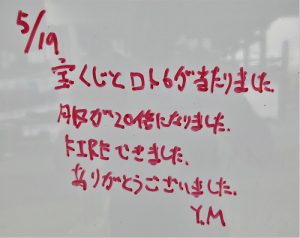 5/19
宝くじとロト6が当たりました.
月収が20倍になりました.
FIREできました.
ありがとうございました.
Y.M